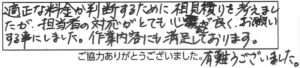 適正な料金か判断するために相見積りを考えまし
たが、担当者の対応がとても心象が良く、お願い
する事にしました。作業内容にも満足しております。
ご協力ありがとうございました。有難うございました。